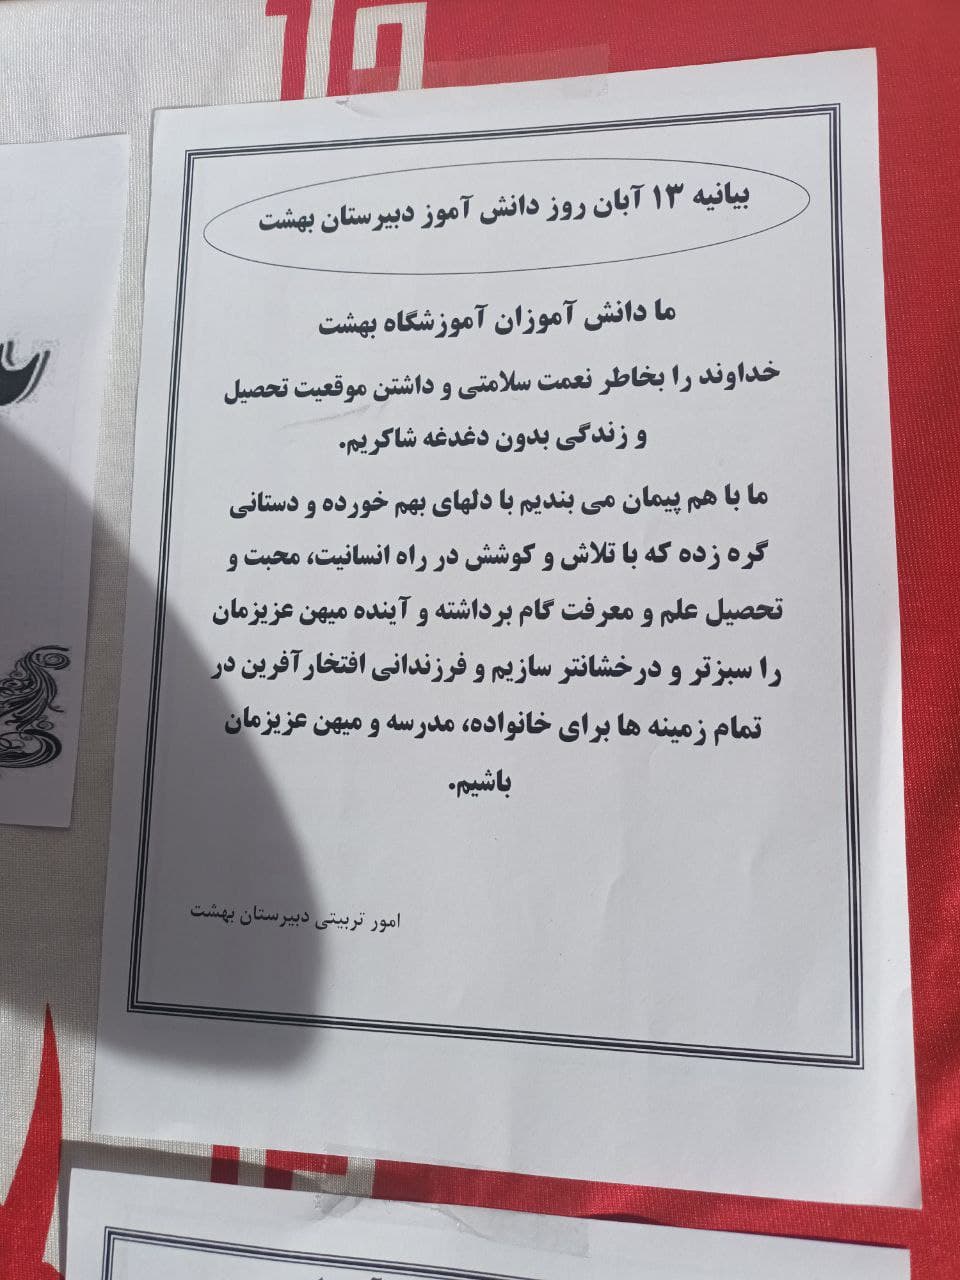 بیانیه ۱۳ آبان روز دانش آموز دبیرستان بهشت
ما دانش آموزان آموزشگاه بهشت
خداوند را بخاطر نعمت سلامتی و داشتن موقعیت تحصیل
و زندگی بدون دغدغه شاکریم.
ما با هم پیمان می بندیم با دلهای بهم خورده و دستانی
گره زده که با تلاش و کوشش در راه انسانیت، محبت و
تحصیل علم و معرفت گام برداشته و آینده میهن عزیزمان
را سبزتر و درخشانتر سازیم و فرزندانی افتخارآفرین در
تمام زمینه ها برای خانواده، مدرسه و میهن عزیزمان
باشیم.
امور تربیتی دبیرستان بهشت